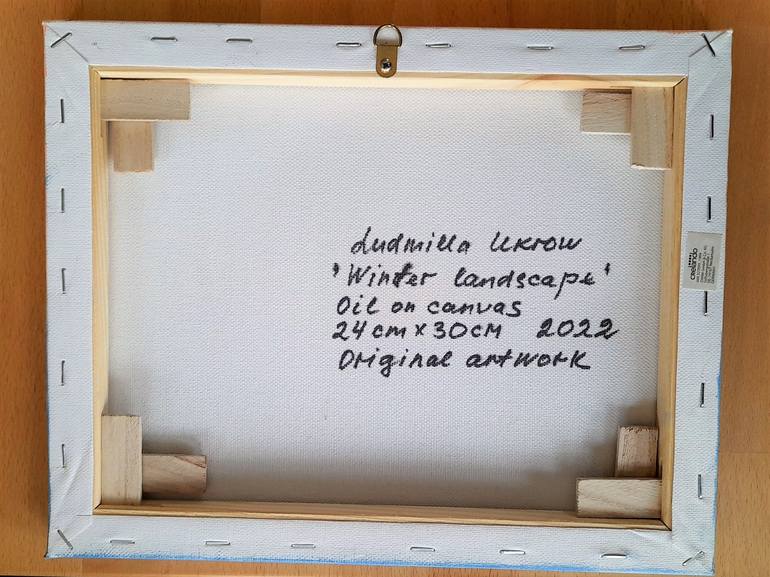 Ludmilla Ukrow
'Winter landscape'
Oil on canvas
24cm x 30cm 2022
Original artwork
crelando